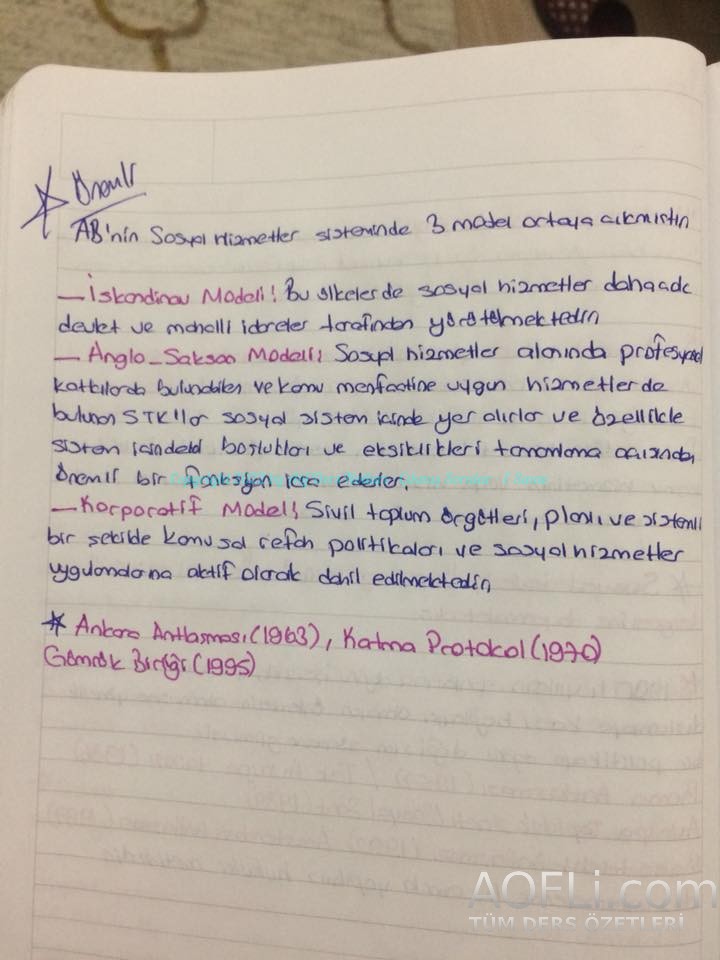 Önemli
AB'nin Sosyal Hizmetler sisteminde 3 model ortaya çıkmıştır.
— İskandinav Modeli: Bu ülkelerde sosyal hizmetler daha çok
devlet ve mahalli idareler tarafından yürütülmektedir.
— Anglo-Sakson Modeli: Sosyal hizmetler alanında profesyonel
katkılarda bulunabilen ve kamu menfaatine uygun hizmetlerde
bulunan STK'lar sosyal sistem içinde yer alırlar ve özellikle
sistem içindeki boşlukları ve eksiklikleri tamamlama açısından
önemli bir fonksiyon icra ederler.
— Korporatif Model: Sivil toplum örgütleri, planlı ve sistemli
bir şekilde kamusal refah politikaları ve sosyal hizmetler
uygulamalarına aktif olarak dahil edilmektedir.
* Ankara Antlaşması (1963), Katma Protokol (1970)
Gümrük Birliği (1995)
AOFLi.com
TÜM DERS ÖZETLERİ